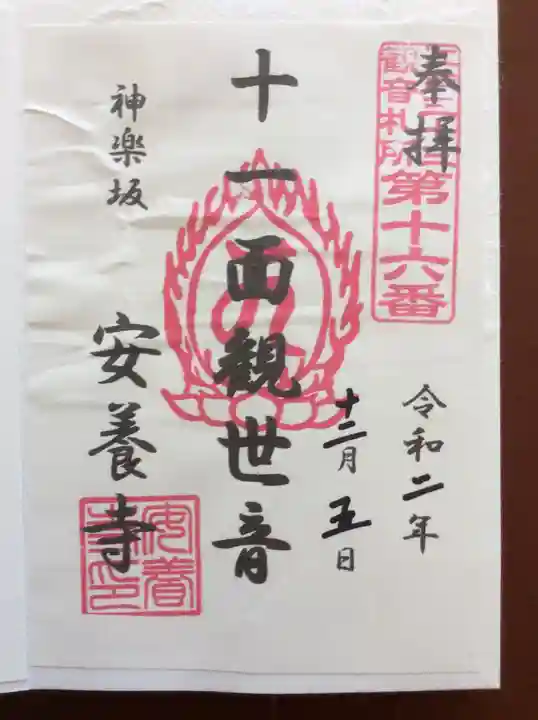 奉拝
観音札所
第十六番
令和二年
十二月五日
十一面観世音
神楽坂
安養寺
安養
寺印